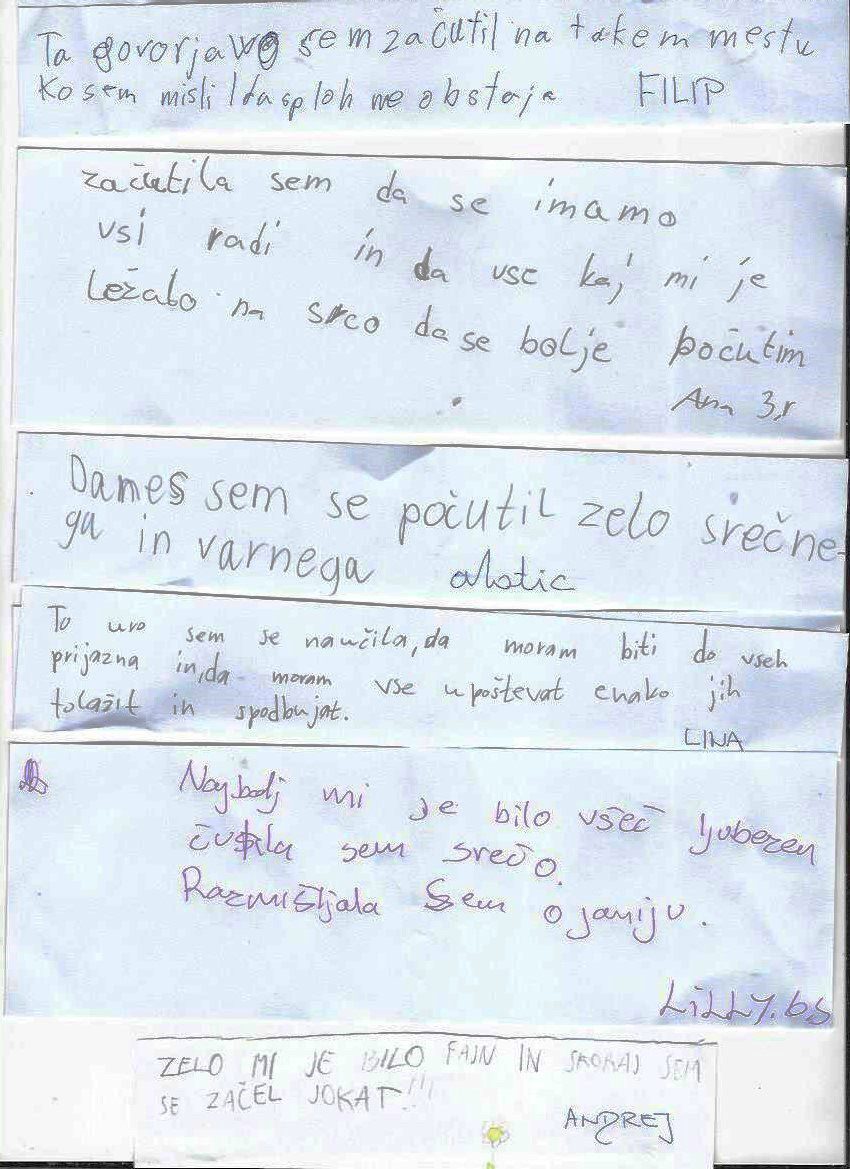 Ta govorjavo sem začutil na takem mestu
Ko sem mislil da sploh ne obstaja FILIP
začutila sem da se imamo
vsi radi in da vse kaj mi je
ležalo na srco da se bolje počutim
Ana 3,r
Danes sem se počutil zelo srečne-
ga in varnega
To uro sem se naučila, da moram biti do vseh
prijazna in, da moram vse upoštevat enako jih
tolažit in spodbujat.
LINA
Najbolj mi je bilo všeč ljubezen
čutila sem srečo.
Razmišljala sem o janiju.
LiLLy.bs
ZELO MI JE BILO FAJN IN SKORAJ SEM
SE ZAČEL JOKAT!!!
ANDREJ